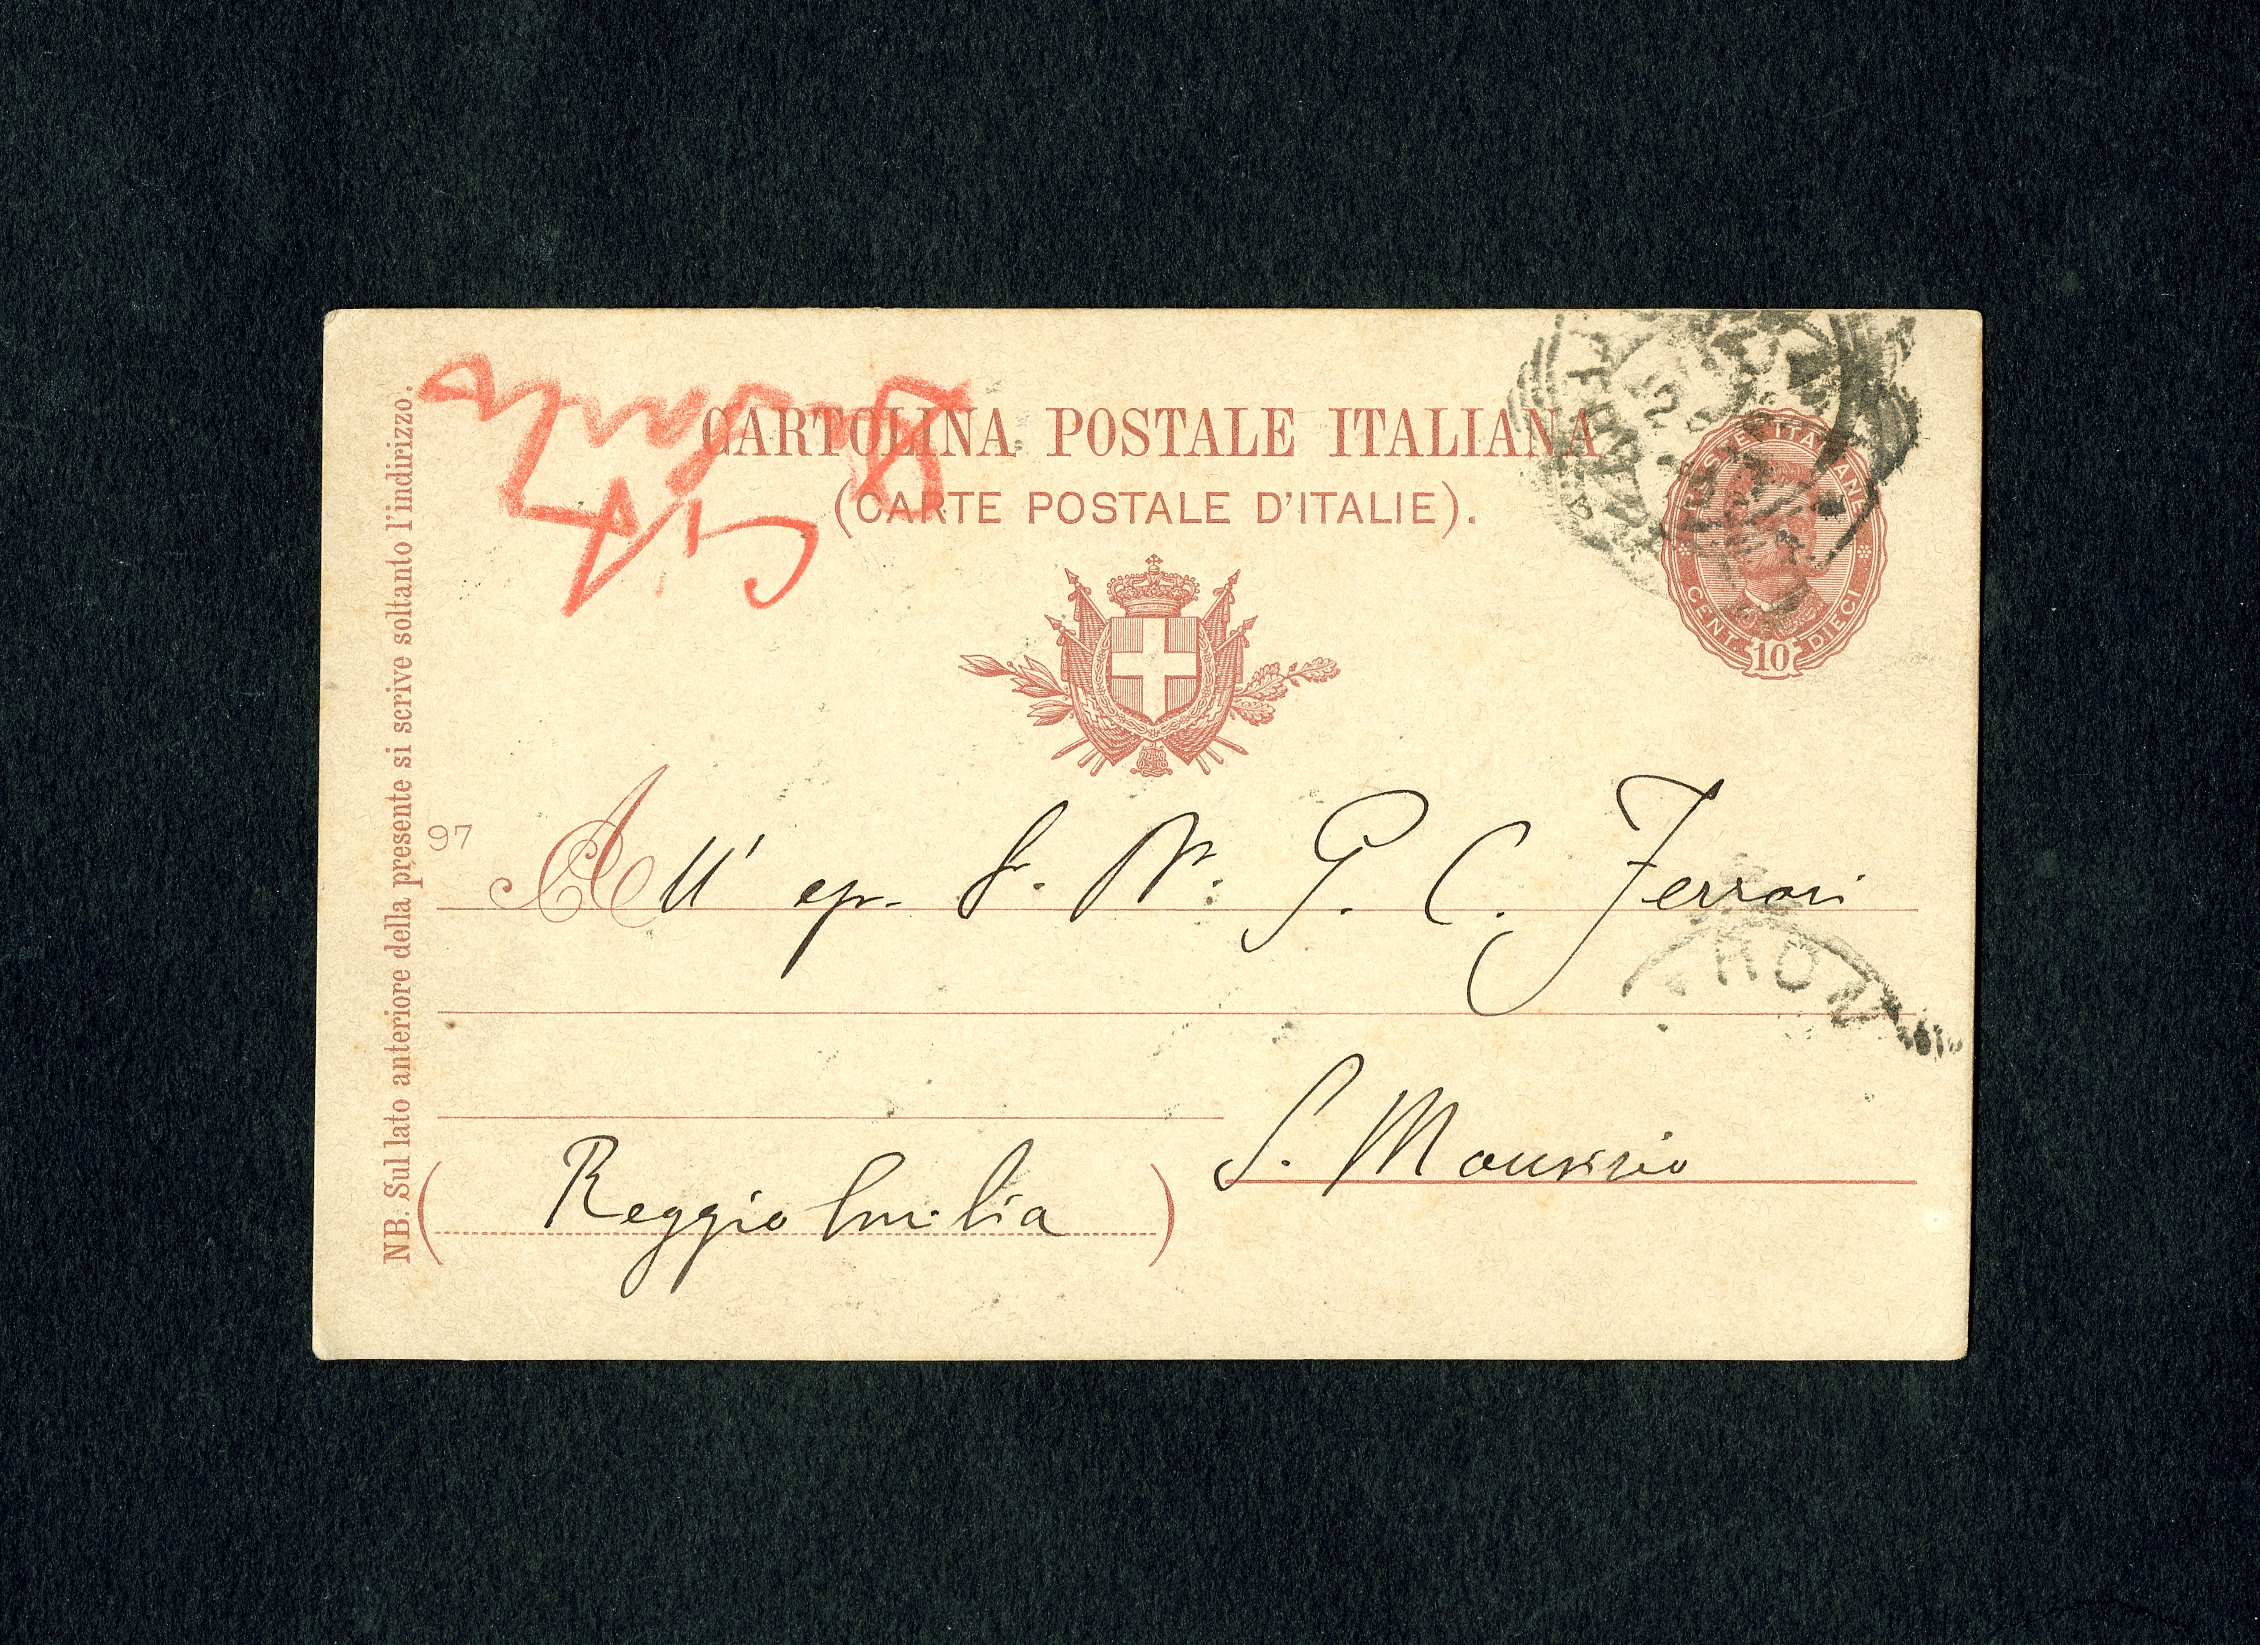 CARTOLINA POSTALE ITALIANA
(CARTE POSTALE D'ITALIE).
POSTE ITALIANE
CENT. 10 DIECI
NB. Sul lato anteriore della presente si scrive soltanto l'indirizzo.
97
All' egr. S. Dr. G. C. Ferrari
S. Maurizio
(Reggio Emilia)